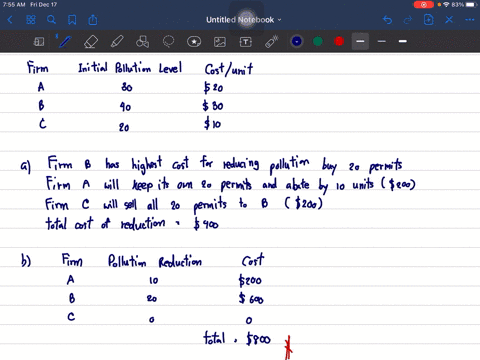 7:55 AM Fri Dec 17
83%
Untitled Notebook
Firm Initial Pollution Level Cost/unit
A 30 $20
B 40 $30
C 20 $10
a) Firm B has highest cost for reducing pollution buy 20 permits
Firm A will keep its own 20 permits and abate by 10 units ($200)
Firm C will sell all 20 permits to B ($200)
total cost of reduction = $400
b) Firm Pollution Reduction Cost
A 10 $200
B 20 $600
C 0 0
total = $800